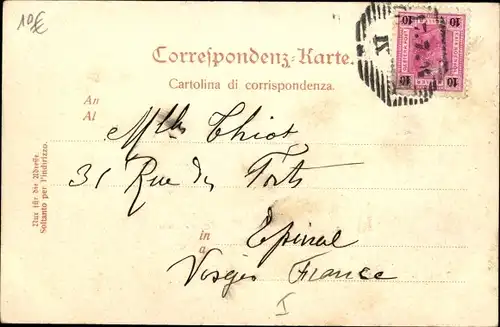 10€
Correspondenz-Karte.
Cartolina di corrispondenza.
An
Al
Mlle Thiot
31 Rue des Forts
in
a
Epinal
Vosges France
I
Nur für die Adresse.
Soltanto per l'indirizzo.
10 10
10 10
IV